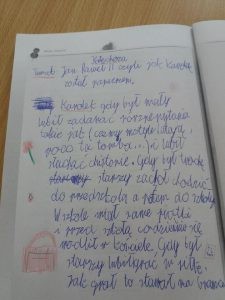 Katecheza
Temat: Jan Paweł II czyli jak Karolek
został papieżem.
Karolek gdy był mały
lubił zadawać różne pytania
takie jak (czemy motyle latają,
poco są
lubił
słuchać chistorie. Gdy był troche
starszy zaczoł chodzić
do przedszkola a potem do szkoły
W szkole miał same piątki
i przed szkołą codziennie się
modlił w kościele. Gdy był
starszy lubił grać w piłke
Jak grał to stawał na bramce